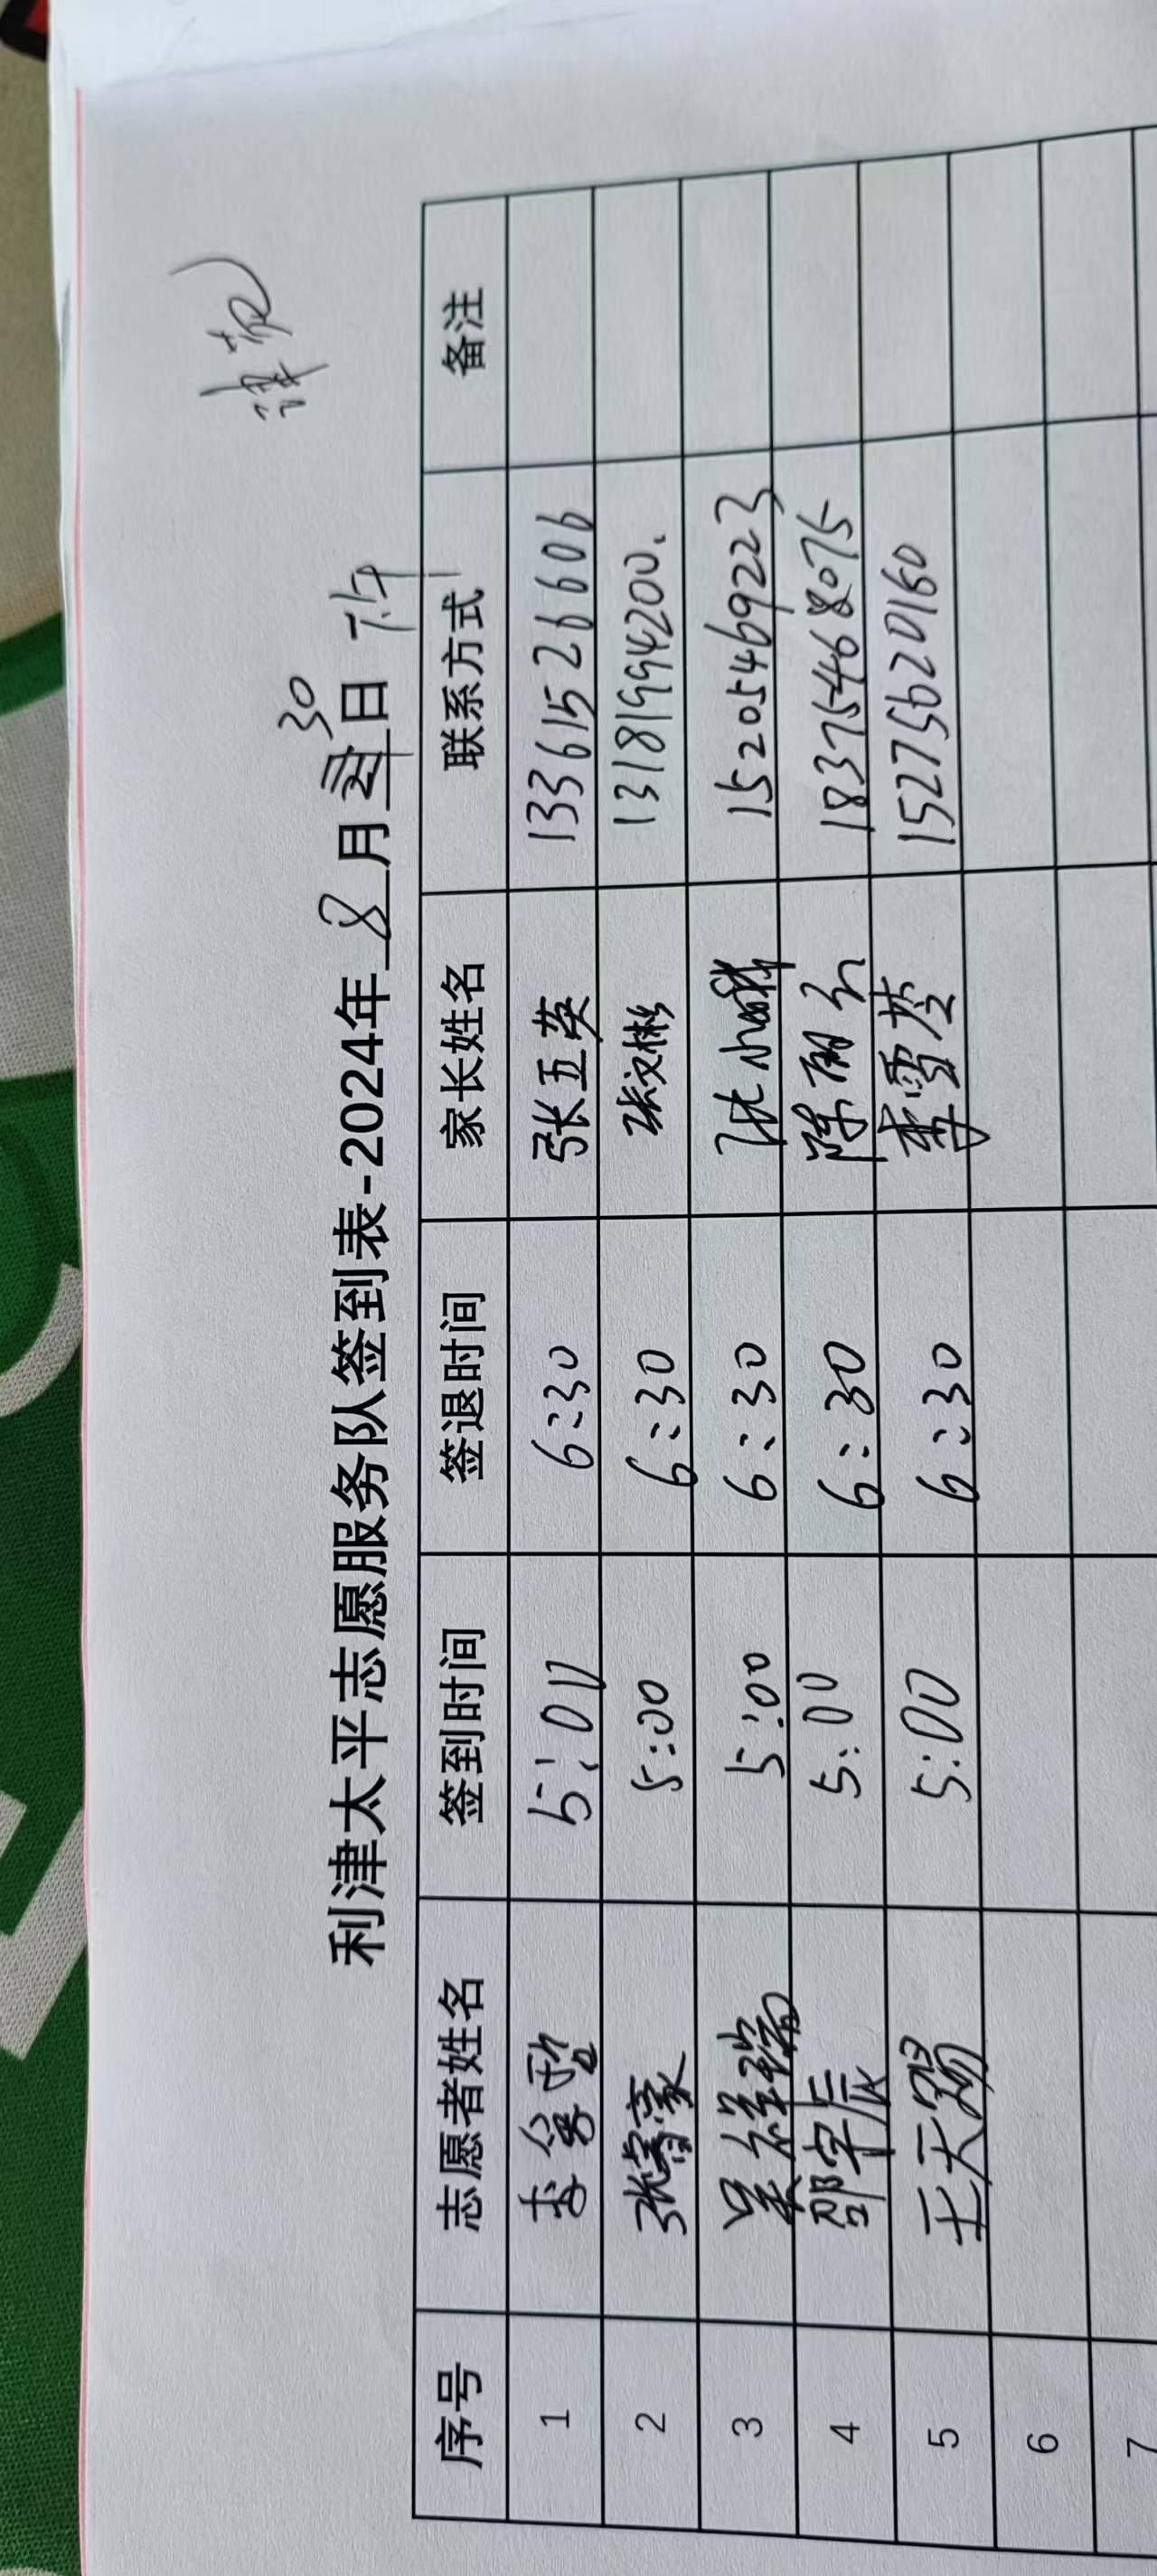 利津太平志愿服务队签到表-2024年8月30日下午
序号 志愿者姓名 签到时间 签退时间 家长姓名 联系方式 备注
1 5:00 6:30 张五英 13361526606
2 张睿豪 5:00 6:30 张文彬 13181994200.
3 吴祥瑞 5:00 6:30 15205469223
4 邵宇辰 5:00 6:30 陈丽 18375468075
5 王天赐 5:00 6:30 李雪莹 15275620160
6
7